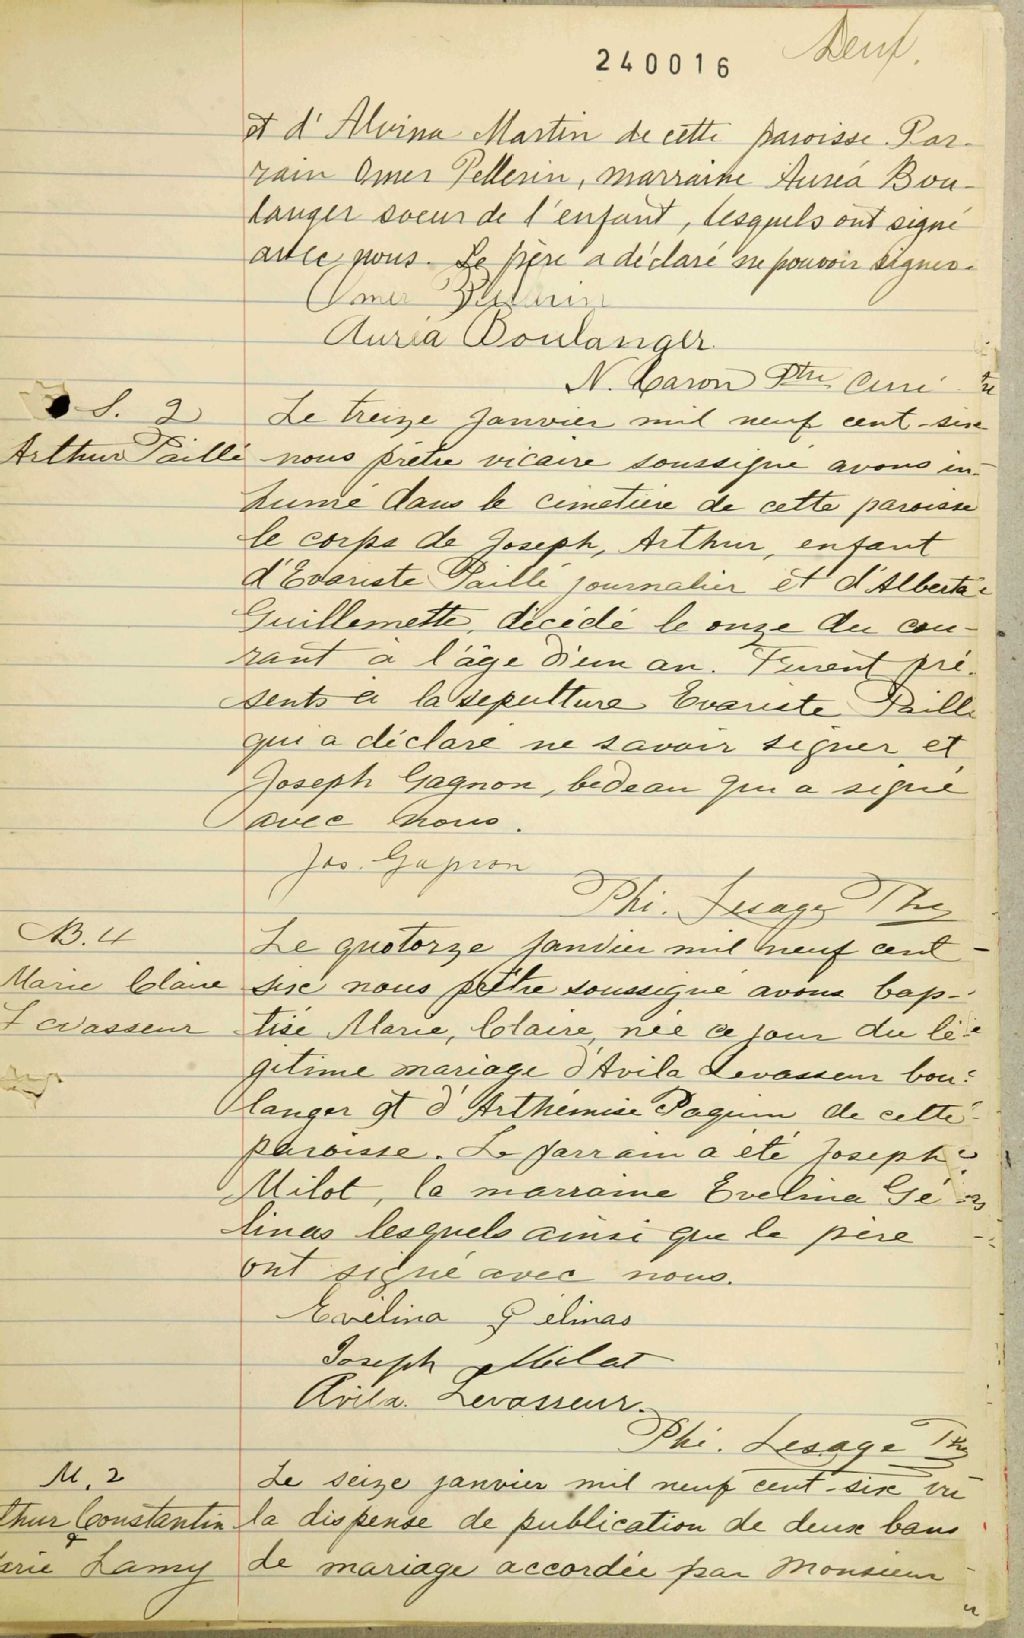 240016
Neuf.
et d'Alvina Martin de cette paroisse. Par-
rain Omer Pellerin, marraine Auréa Bou-
langer soeur de l'enfant, lesquels ont signé
avec nous. Le père a déclaré ne pouvoir signer.
Omer Pellerin
Auréa Boulanger
N. Caron Ptre Curé
S. 2
Arthur Paillé
Le treize janvier mil neuf cent-six
nous prêtre vicaire soussigné avons in-
humé dans le cimetière de cette paroisse
le corps de Joseph, Arthur, enfant
d'Evariste Paillé journalier et d'Alberta
Guillemette, décédé le onze du cou-
rant à l'âge d'un an. Furent pré-
sents à la sépulture Evariste Paillé
qui a déclaré ne savoir signer et
Joseph Gagnon, bedeau qui a signé
avec nous.
Jos. Gagnon
Phi. Lesage Ptre
B. 4
Marie Claire
Levasseur
Le quatorze janvier mil neuf cent
six nous prêtre soussigné avons bap-
tisé Marie, Claire, née ce jour du lé-
gitime mariage d'Avila Levasseur bou-
langer et d'Arthémise Paquin de cette
paroisse. Le parrain a été Joseph
Milot, la marraine Evelina Gé
linas lesquels ainsi que le père
ont signé avec nous.
Evélina Gélinas
Joseph Milot
Avila Levasseur.
Phi. Lesage Ptre
M. 2
thur Constantin
&
arie Lamy
Le seize janvier mil neuf cent-six vu
la dispense de publication de deux bans
de mariage accordée par Monsieur